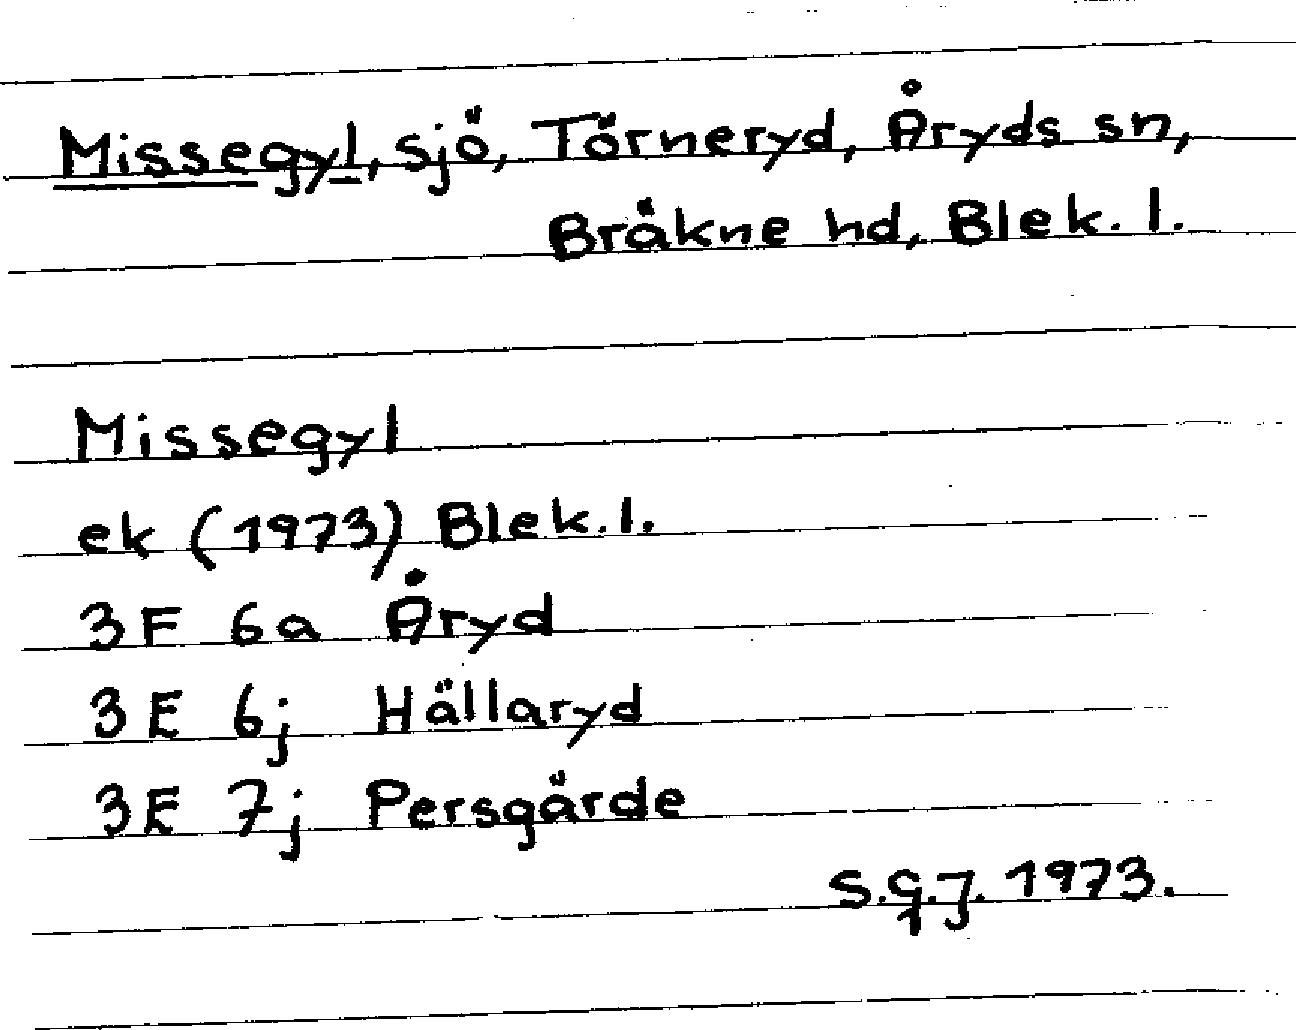 Missegyl, sjö, Törneryd, Åryds sn,
Bräkne hd, Blek. l.
Missegyl
ek (1973) Blek. l.
3F 6a Åryd
3E 6j Hällaryd
3E 7j Persgärde
S.G.J. 1973.